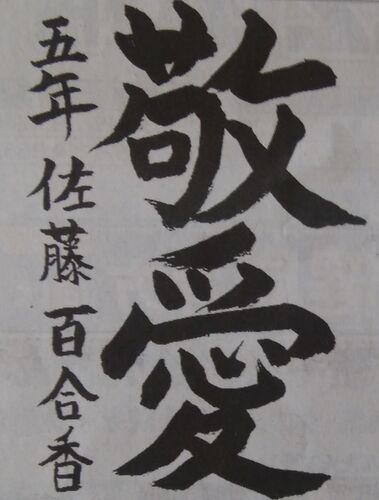 敬愛
五年 佐藤 百合香